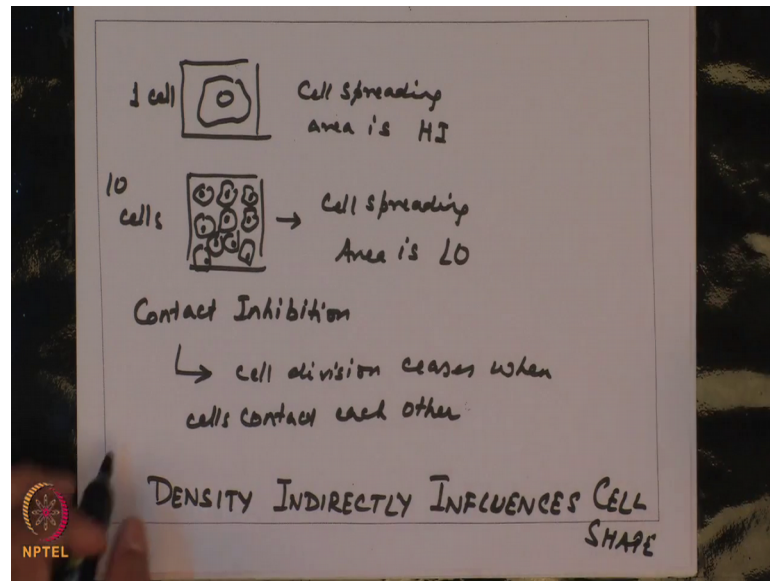 1 cell
Cell spreading
area is HI
10
cells
→ Cell spreading
Area is LO
Contact Inhibition
↳ cell division ceases when
cells contact each other
DENSITY INDIRECTLY INFLUENCES CELL
SHAPE
NPTEL